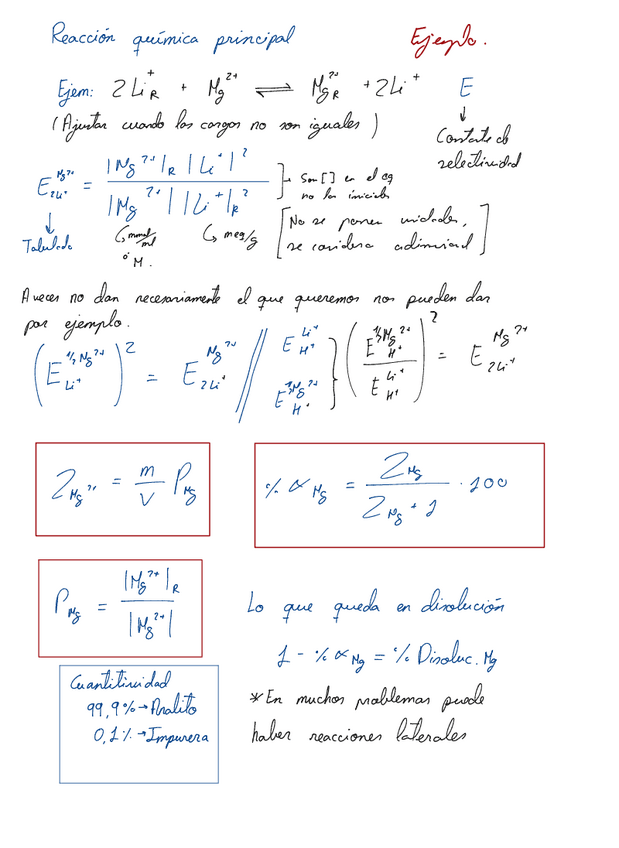 Reacción química principal
Ejemplo.
Ejem: 2Li⁺R + Mg²⁺ ⇌ Mg²⁺R + 2Li⁺ E
(Ajustar cuando las cargas no son iguales)
↓
Constante de
selectividad
E Mg²⁺ 2Li⁺ = |Mg²⁺|R |Li⁺|² / |Mg²⁺| |Li⁺|R²
Son [] en el eq
no las iniciales
↓
Tabulada
↳ mmol/ml
ó M.
↳ meq/g
[No se ponen unidades,
se considera adimensional]
A veces no dan necesariamente el que queremos nos pueden dar
por ejemplo.
(E ½Mg²⁺ Li⁺)² = E Mg²⁺ 2Li⁺ // E Li⁺ H⁺
E ½Mg²⁺ H⁺
} (E ½Mg²⁺ H⁺ / E Li⁺ H⁺)² = E Mg²⁺ 2Li⁺
Z Mg²⁺ = m/V P Mg
% α Mg = Z Mg / Z Mg + 1 · 100
P Mg = |Mg²⁺|R / |Mg²⁺|
Lo que queda en disolución
1 - % α Mg = % Disoluc. Mg
Cuantitividad
99,9% → Analito
0,1% → Impureza
* En muchos problemas puede
haber reacciones laterales